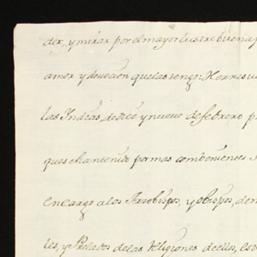 der, y mirar por el mayor lustre buena p
amor y devocion que les tengo: He resu
las Indias de diez y nueve de febrero p
que se han tenido por mas combenientes
encargo a los Arzobispos, y obispos, de
les, y Prelados de las Religiones de ellas, es